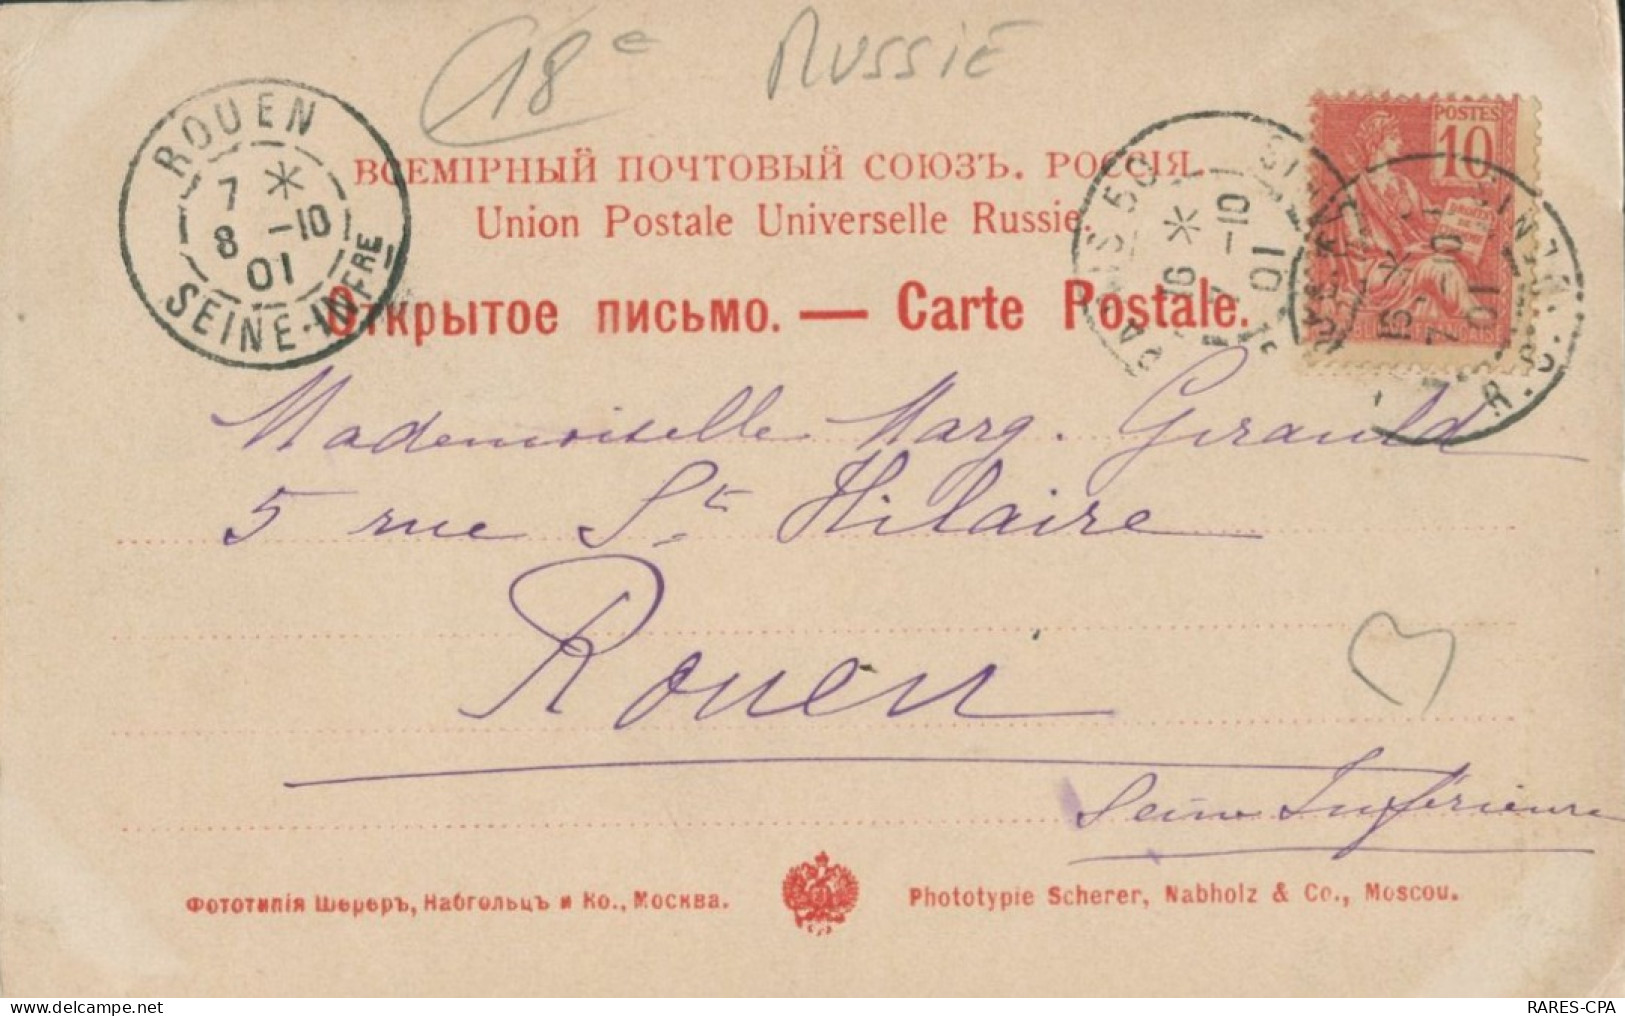 18e Russie
ROUEN
7 *
8 -10
01
SEINE-INFRE
ВСЕМІРНЫЙ ПОЧТОВЫЙ СОЮЗЪ. РОССІЯ.
Union Postale Universelle Russie.
Открытое письмо. — Carte Postale.
PARIS 50
16 *
7 -10
01
POSTES
10
15 *
7 -10
01
Mademoiselle Marg. Girauld
5 rue St Hilaire
Rouen
Seine Inférieure
Фототипія Шереръ, Набгольцъ и Ко., Москва.
Phototypie Scherer, Nabholz & Co., Moscou.
RARES-CPA